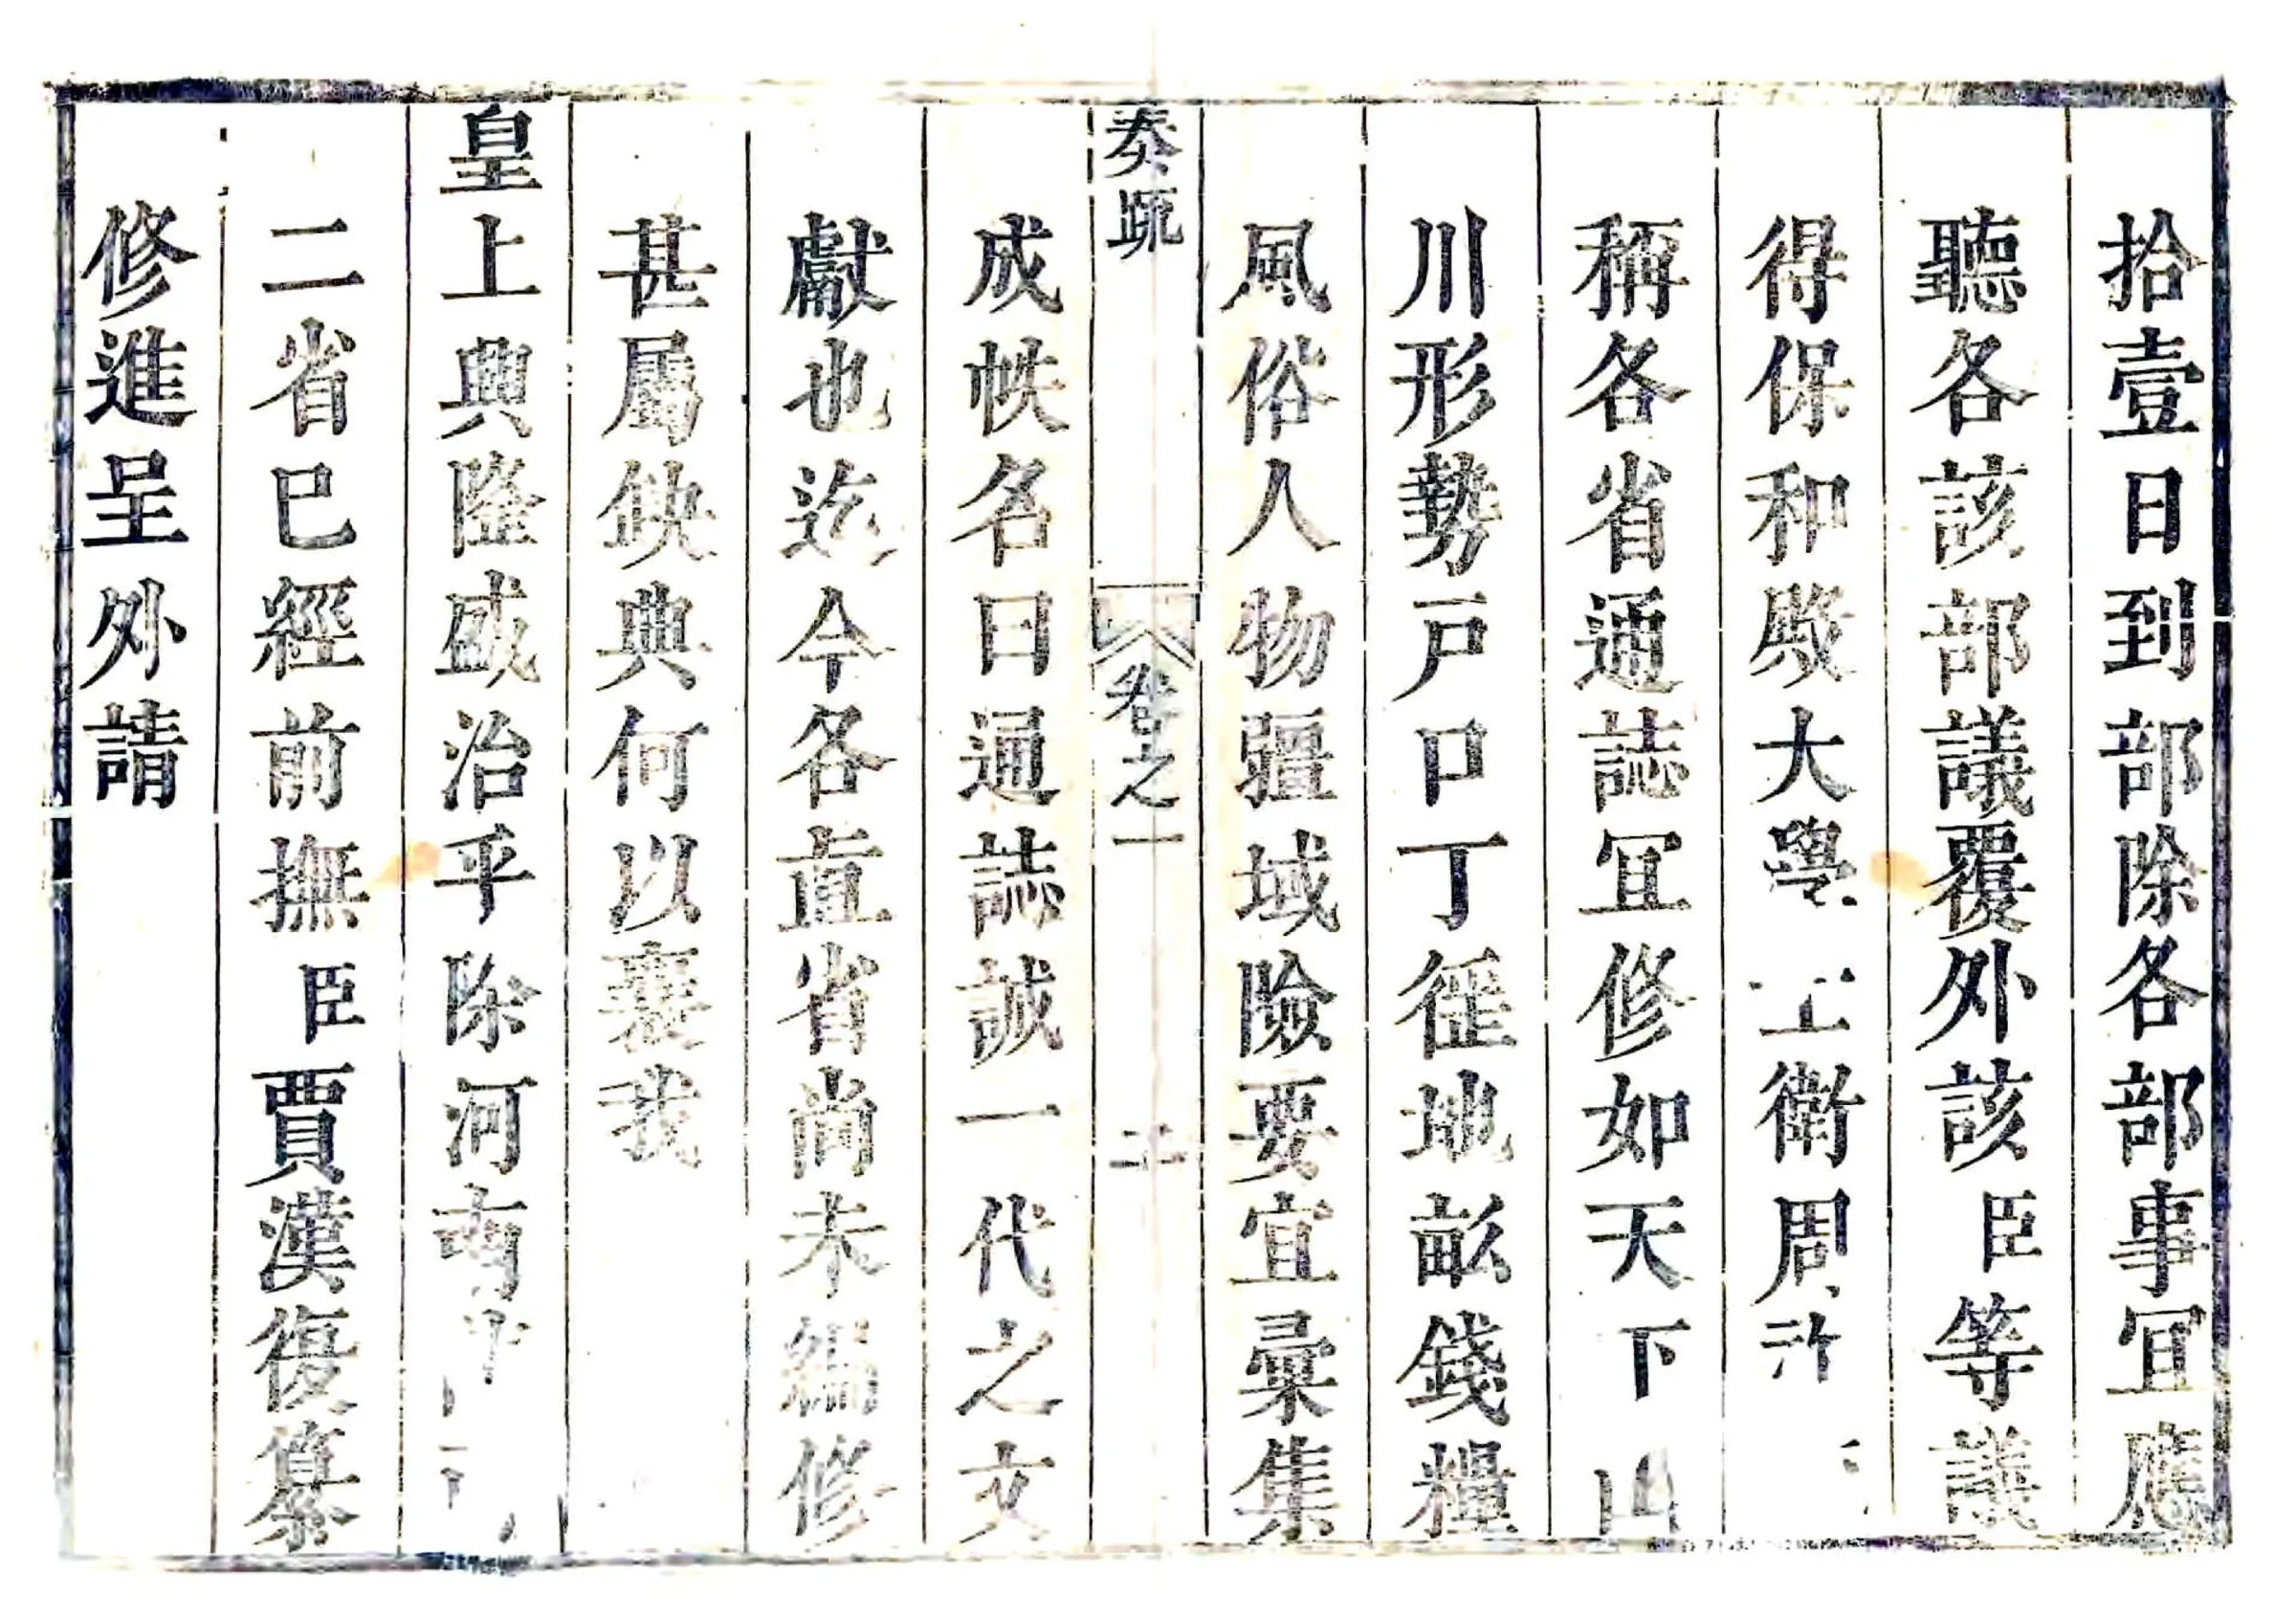 拾壹日到部除各部事冝應
聽各該部議覆外該臣等議
得保和殿大學士衛周祚
稱各省通誌冝修如天下山
川形勢戸口丁徭地畝錢糧
風俗人物疆域險要宜彙集
奏疏 卷之一 二十
成帙名曰通誌誠一代之文
獻也迄今各直省尚未編修
甚屬缺典何以襄我
皇上興隆盛治乎除河南
二省已經前撫臣賈漢復纂
修進呈外請